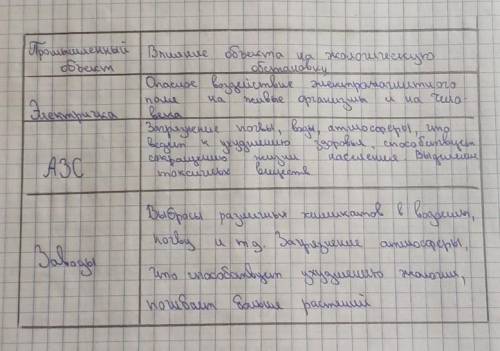 Промышленный
объект
Влияние объекта на экологическую
обстановку
Электричка
Опасное воздействие электромагнитного
поля на живые организмы и на чело-
века
АЗС
Загрязнение почвы, воды, атмосферы, что
ведит к ухудшению здоровья, способствует
сокращению жизни населения. Выделяет
токсичных веществ
Заводы
Выбросы различных химикатов в водоемы,
почву и т.д. Загрязнение атмосферы,
что способствует ухудшению экологии,
погибает больше растений